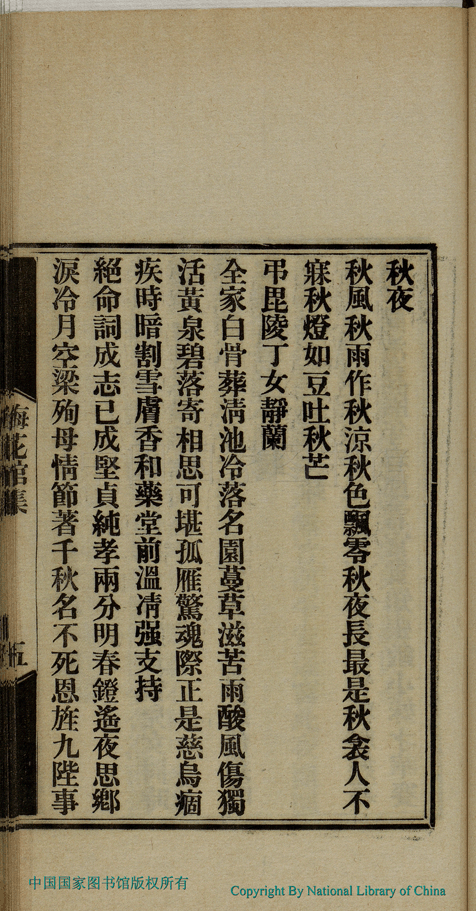 秋夜
秋風秋雨作秋涼秋色飄零秋夜長最是秋衾人不
寐秋燈如豆吐秋芒
弔毘陵丁女靜蘭
全家白骨葬淸池冷落名園蔓草滋苦雨酸風傷獨
活黃泉碧落寄相思可堪孤雁驚魂際正是慈烏痼
疾時暗割雪膚香和藥堂前溫凊强支持
絕命詞成志已成堅貞純孝兩分明春鐙遙夜思鄉
淚冷月空梁殉母情節著千秋名不死恩旌九陛事
梅花館集
五
中国国家图书馆版权所有
Copyright By National Library of China